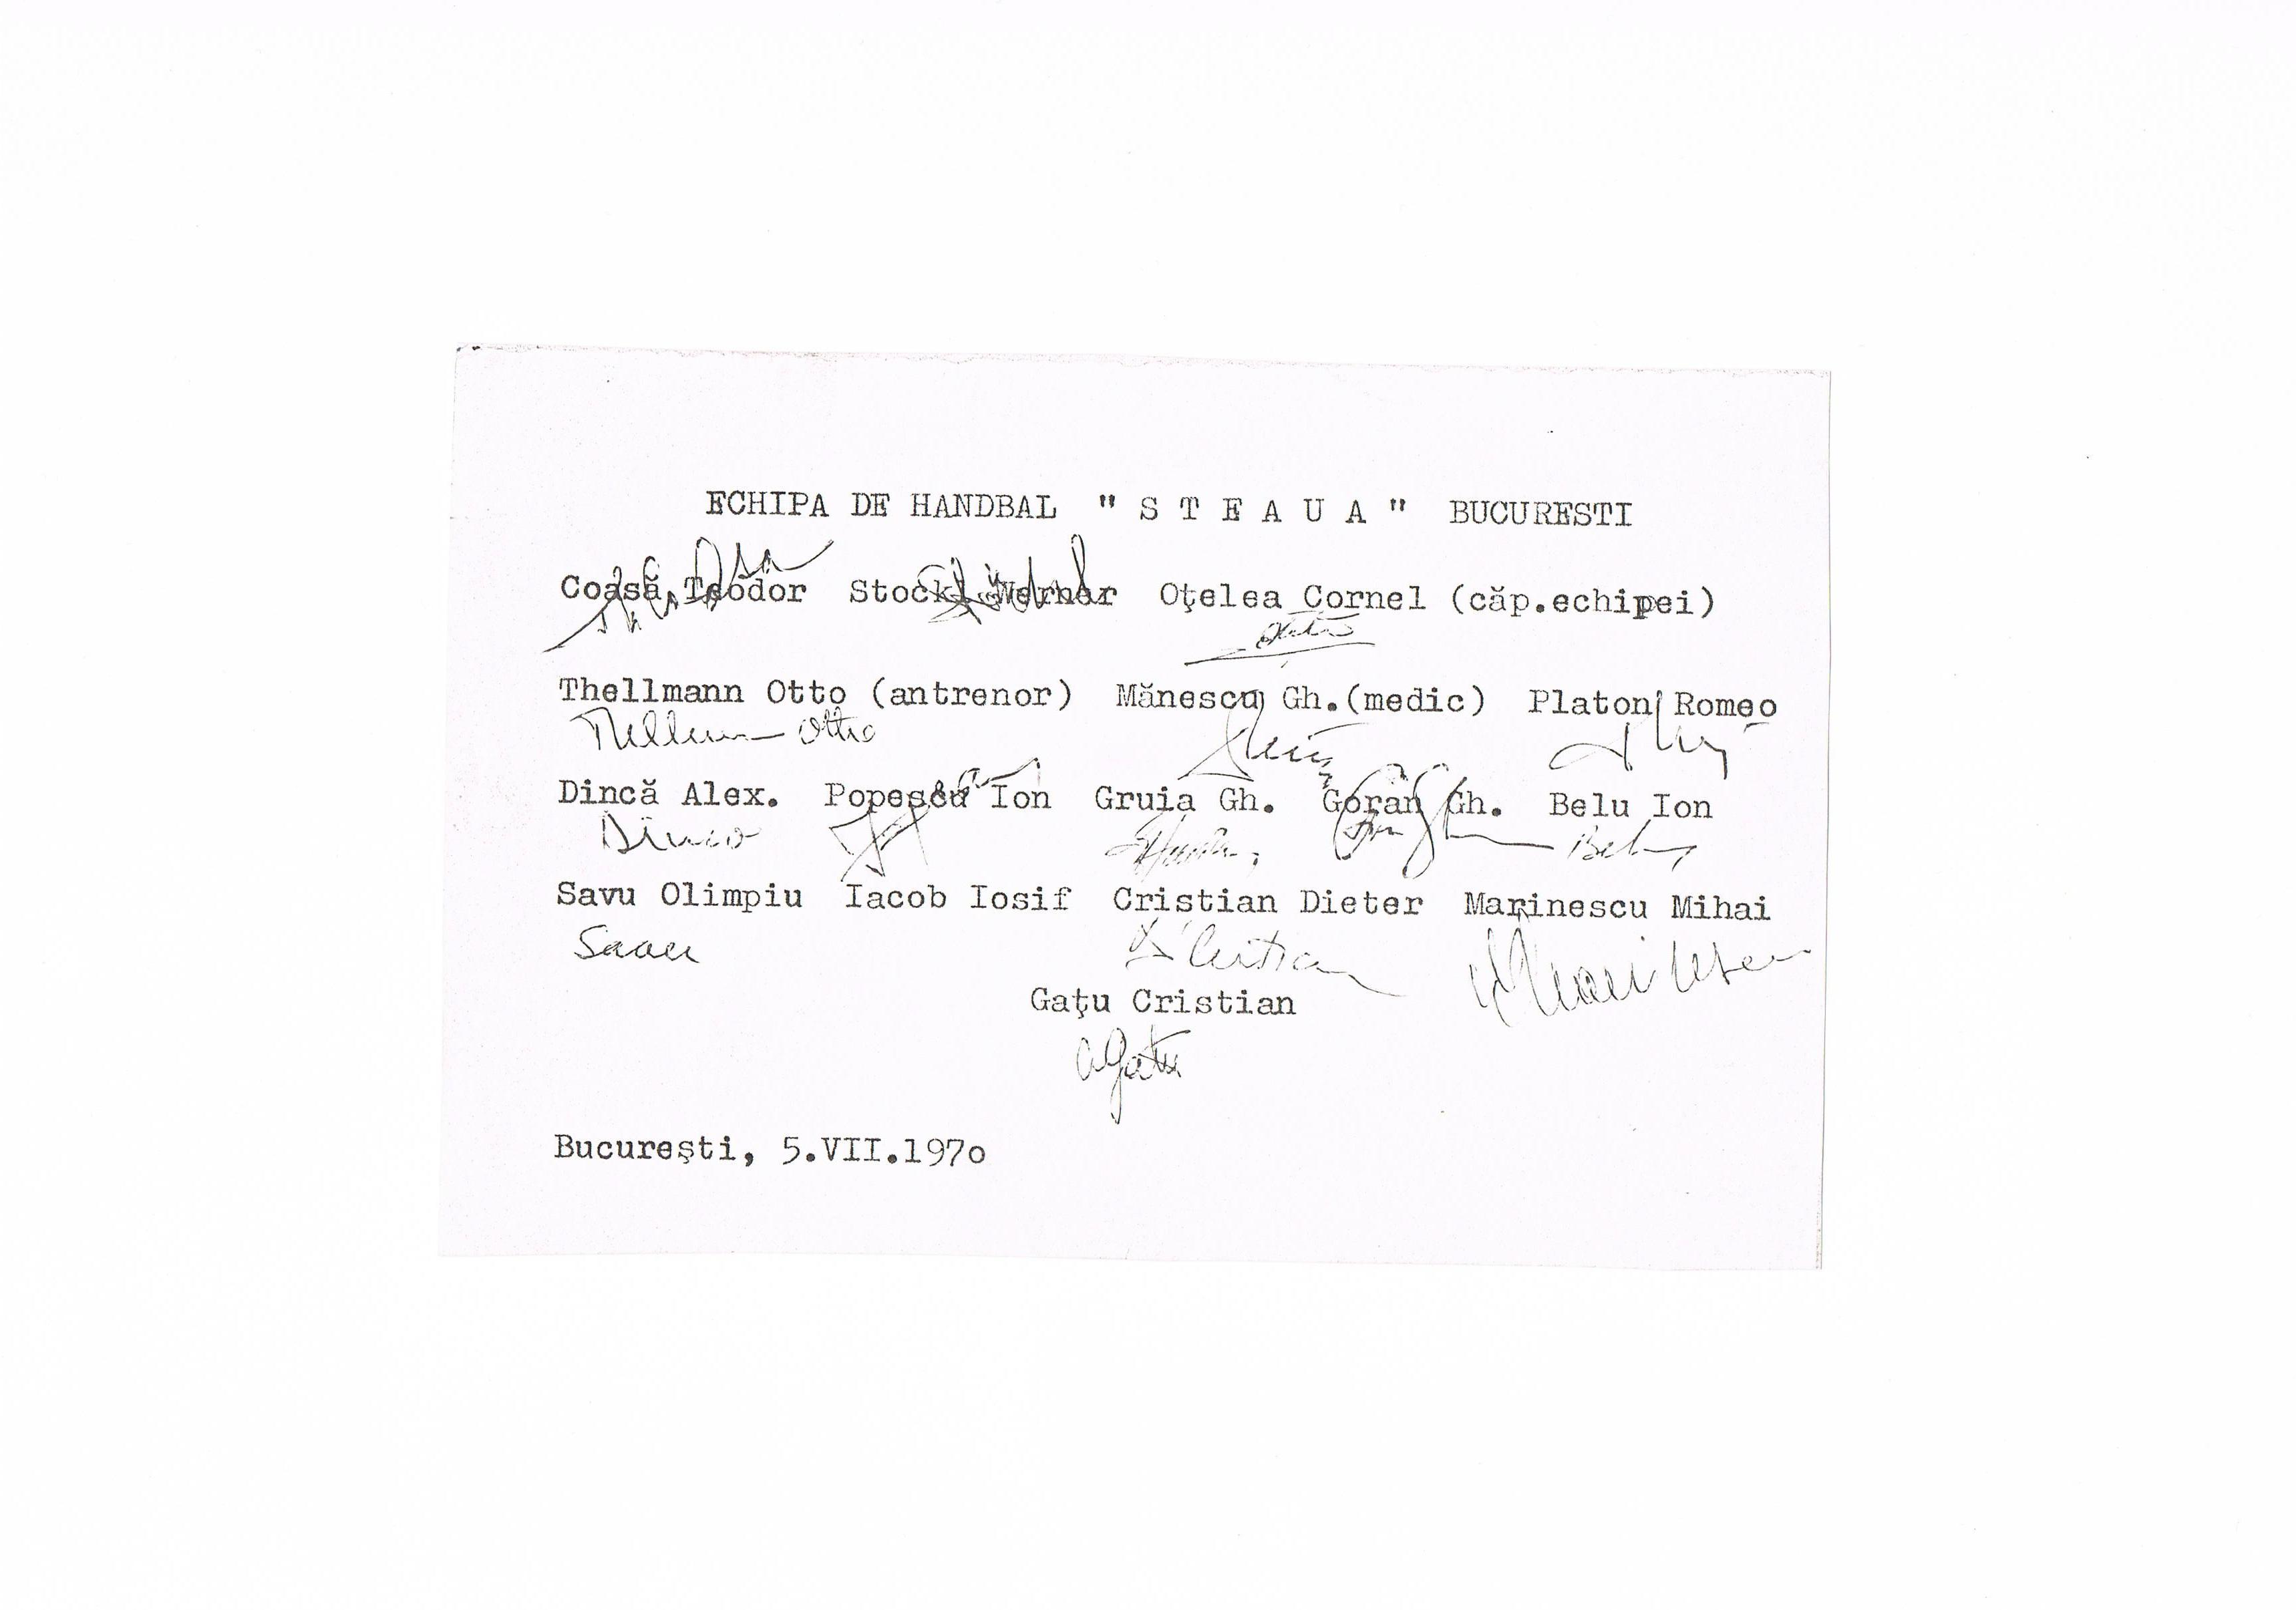 ECHIPA DE HANDBAL " S T E A U A " BUCURESTI
Coasă Teodor Stockl Werner Oţelea Cornel (căp.echipei)
Thellmann Otto (antrenor) Mănescu Gh.(medic) Platon Romeo
Thellmann Otto
Dincă Alex. Popescu Ion Gruia Gh. Goran Gh. Belu Ion
Dinca Belu
Savu Olimpiu Iacob Iosif Cristian Dieter Marinescu Mihai
Savu D Cristian Marinescu
Gaţu Cristian
CGatu
Bucureşti, 5.VII.197o